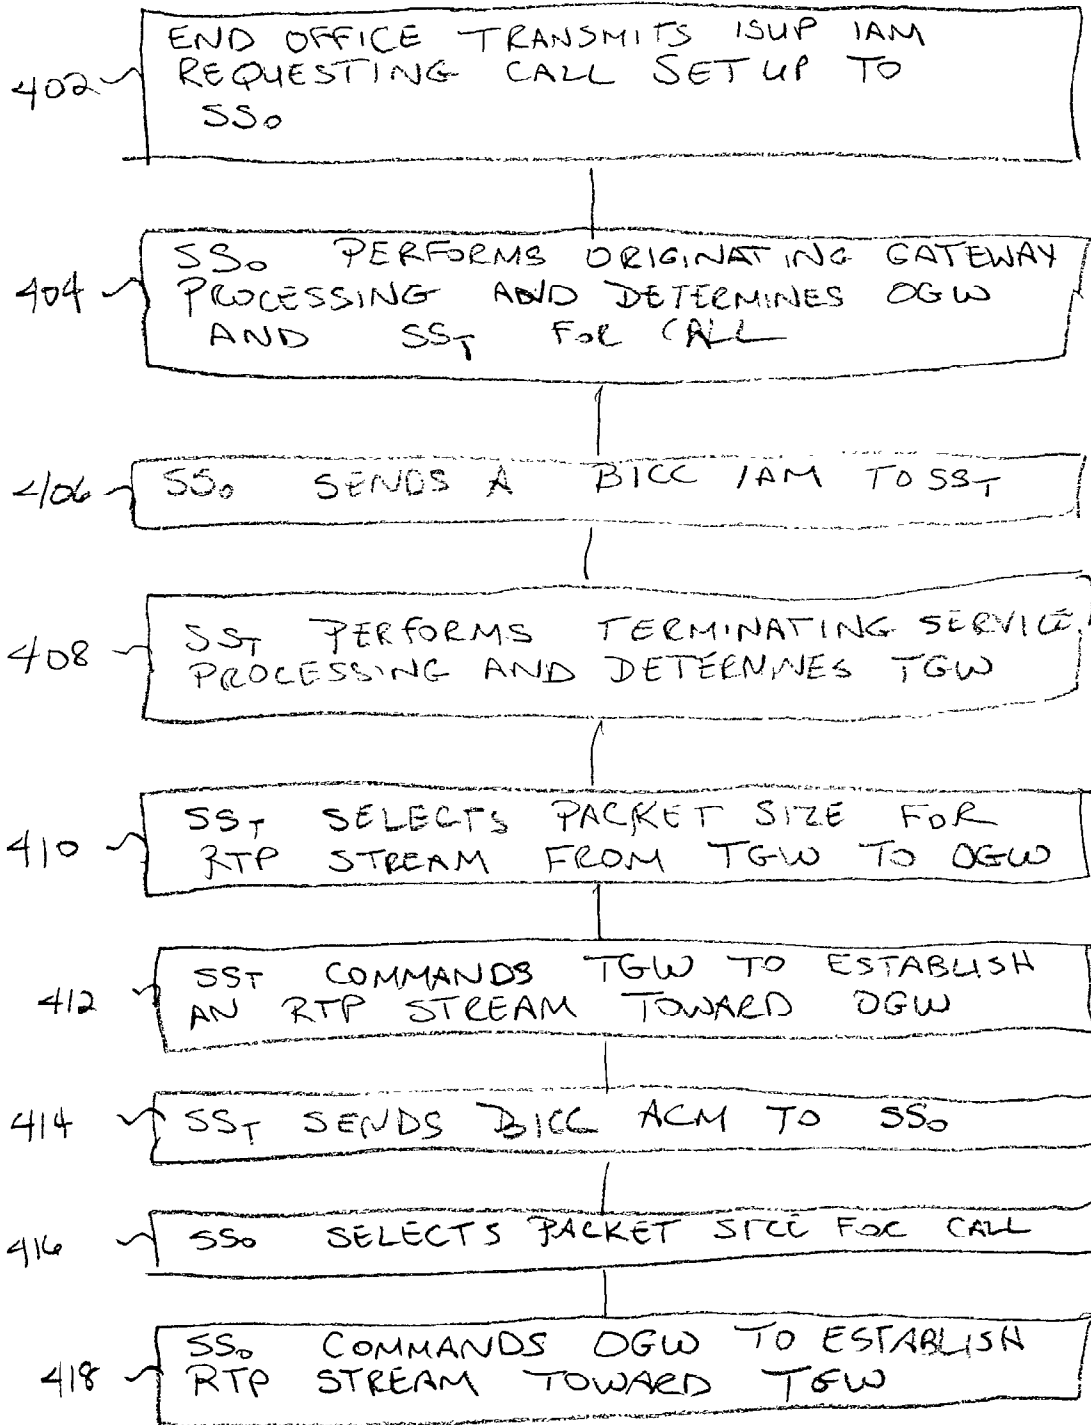 402
END OFFICE TRANSMITS ISUP IAM
REQUESTING CALL SETUP TO
SSO
404
SSO PERFORMS ORIGINATING GATEWAY
PROCESSING AND DETERMINES OGW
AND SST FOR CALL
406
SSO SENDS A BICC IAM TO SST
408
SST PERFORMS TERMINATING SERVICE
PROCESSING AND DETERMINES TGW
410
SST SELECTS PACKET SIZE FOR
RTP STREAM FROM TGW TO OGW
412
SST COMMANDS TGW TO ESTABLISH
AN RTP STREAM TOWARD OGW
414
SST SENDS BICC ACM TO SSO
416
SSO SELECTS PACKET SIZE FOR CALL
418
SSO COMMANDS OGW TO ESTABLISH
RTP STREAM TOWARD TGW